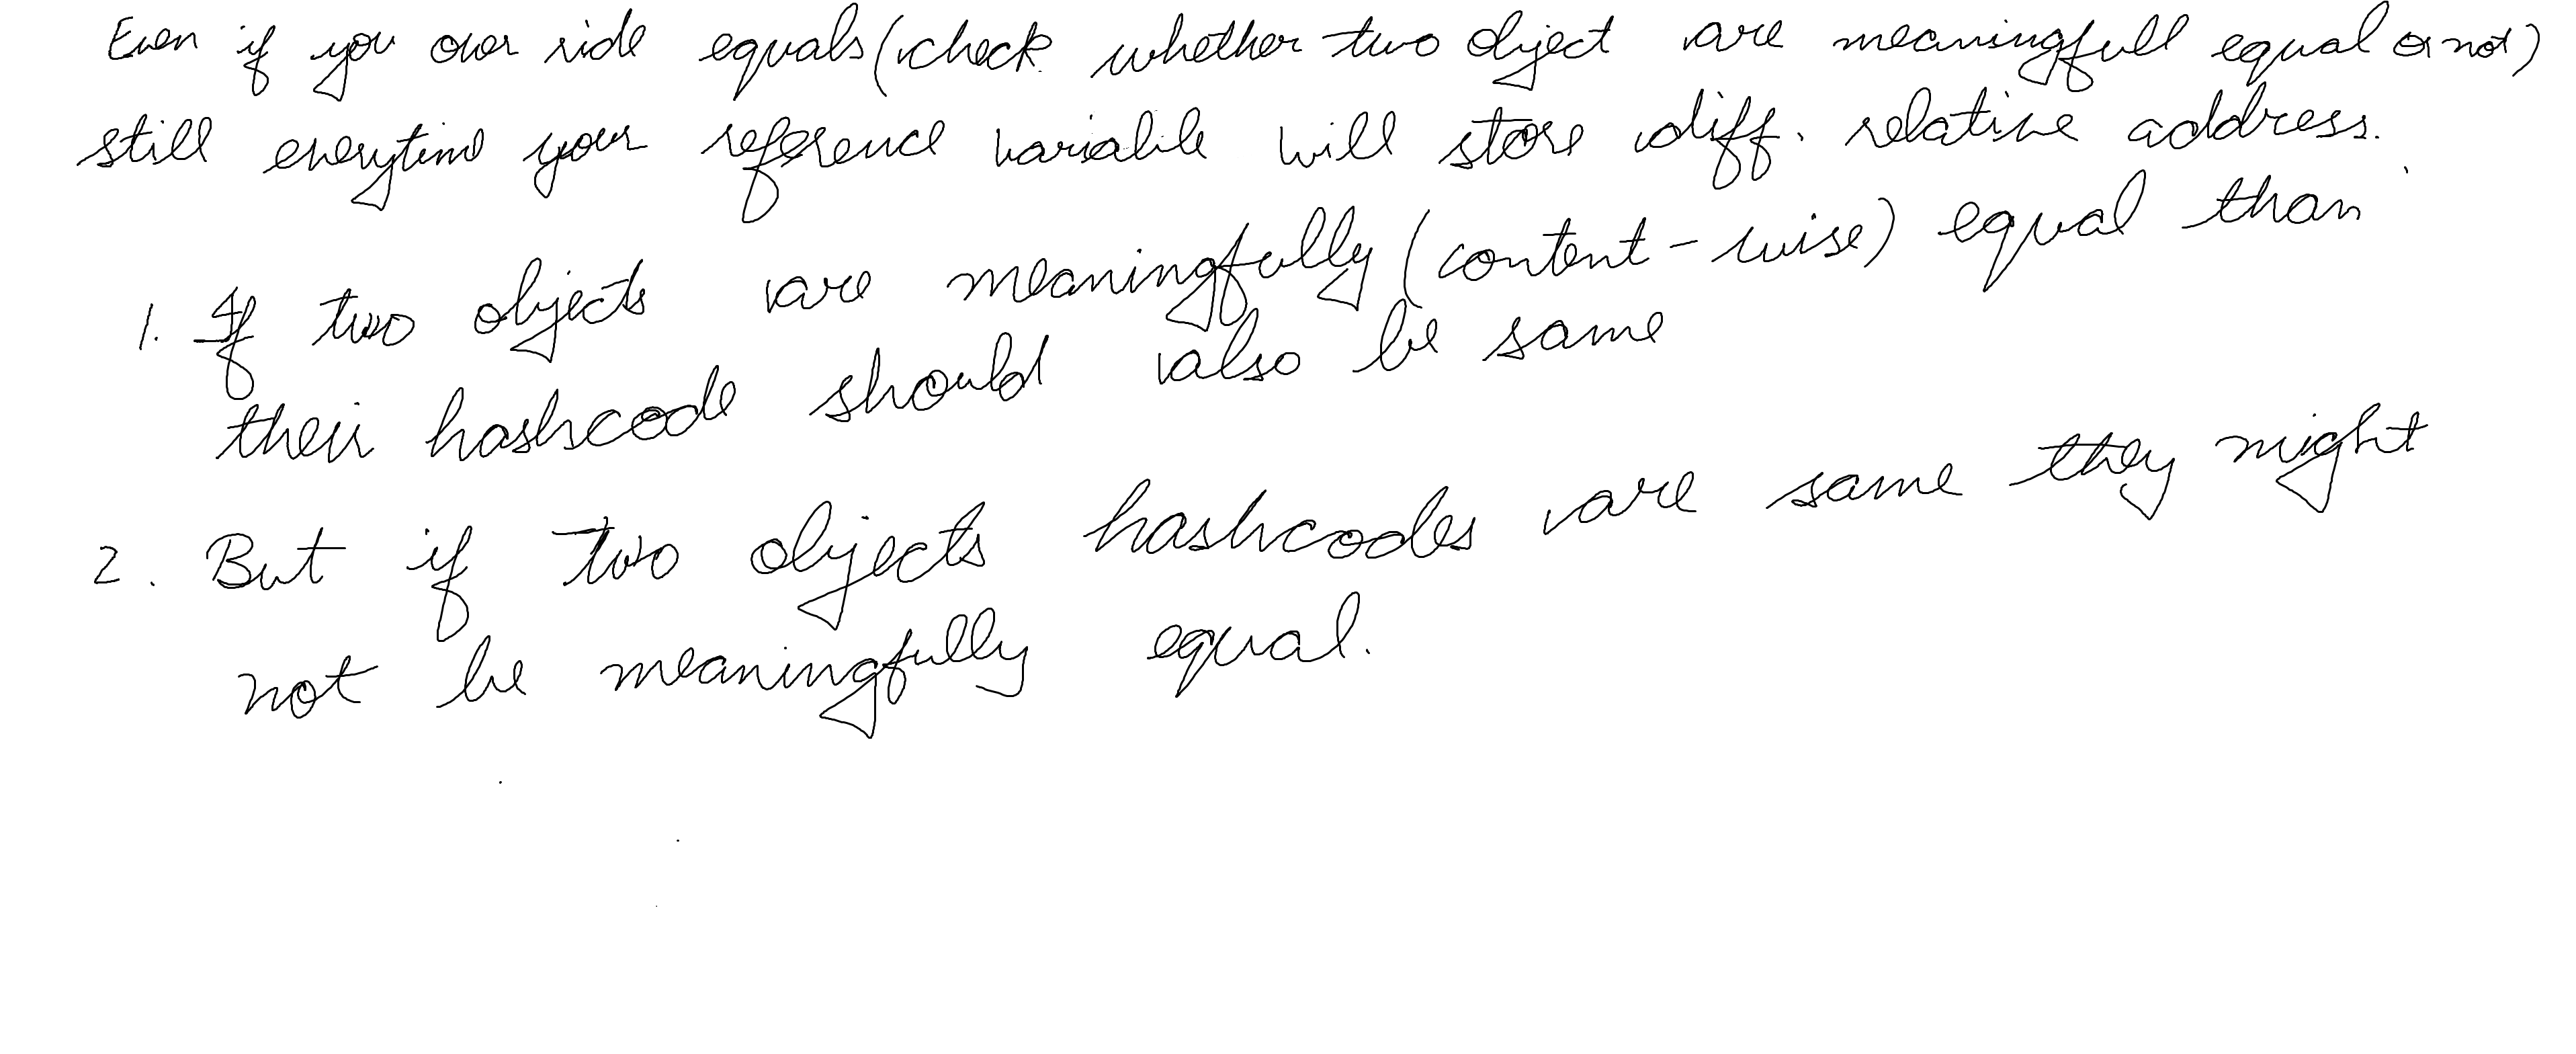 Even if you over ride equals (check whether two object are meaningfull equal or not)
still everytime your reference variable will store diff. relative address.
1. If two objects are meaningfully (content-wise) equal than
their hashcode should also be same
2. But if two objects hashcodes are same they might
not be meaningfully equal.